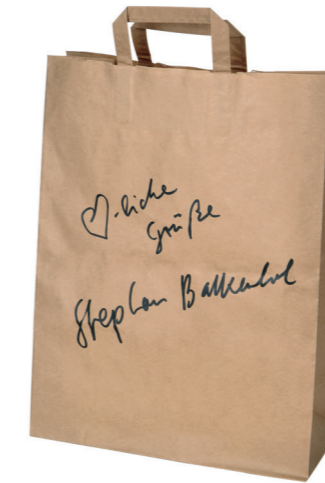 ♡-liche
Grüße
Stephan Balkenhol